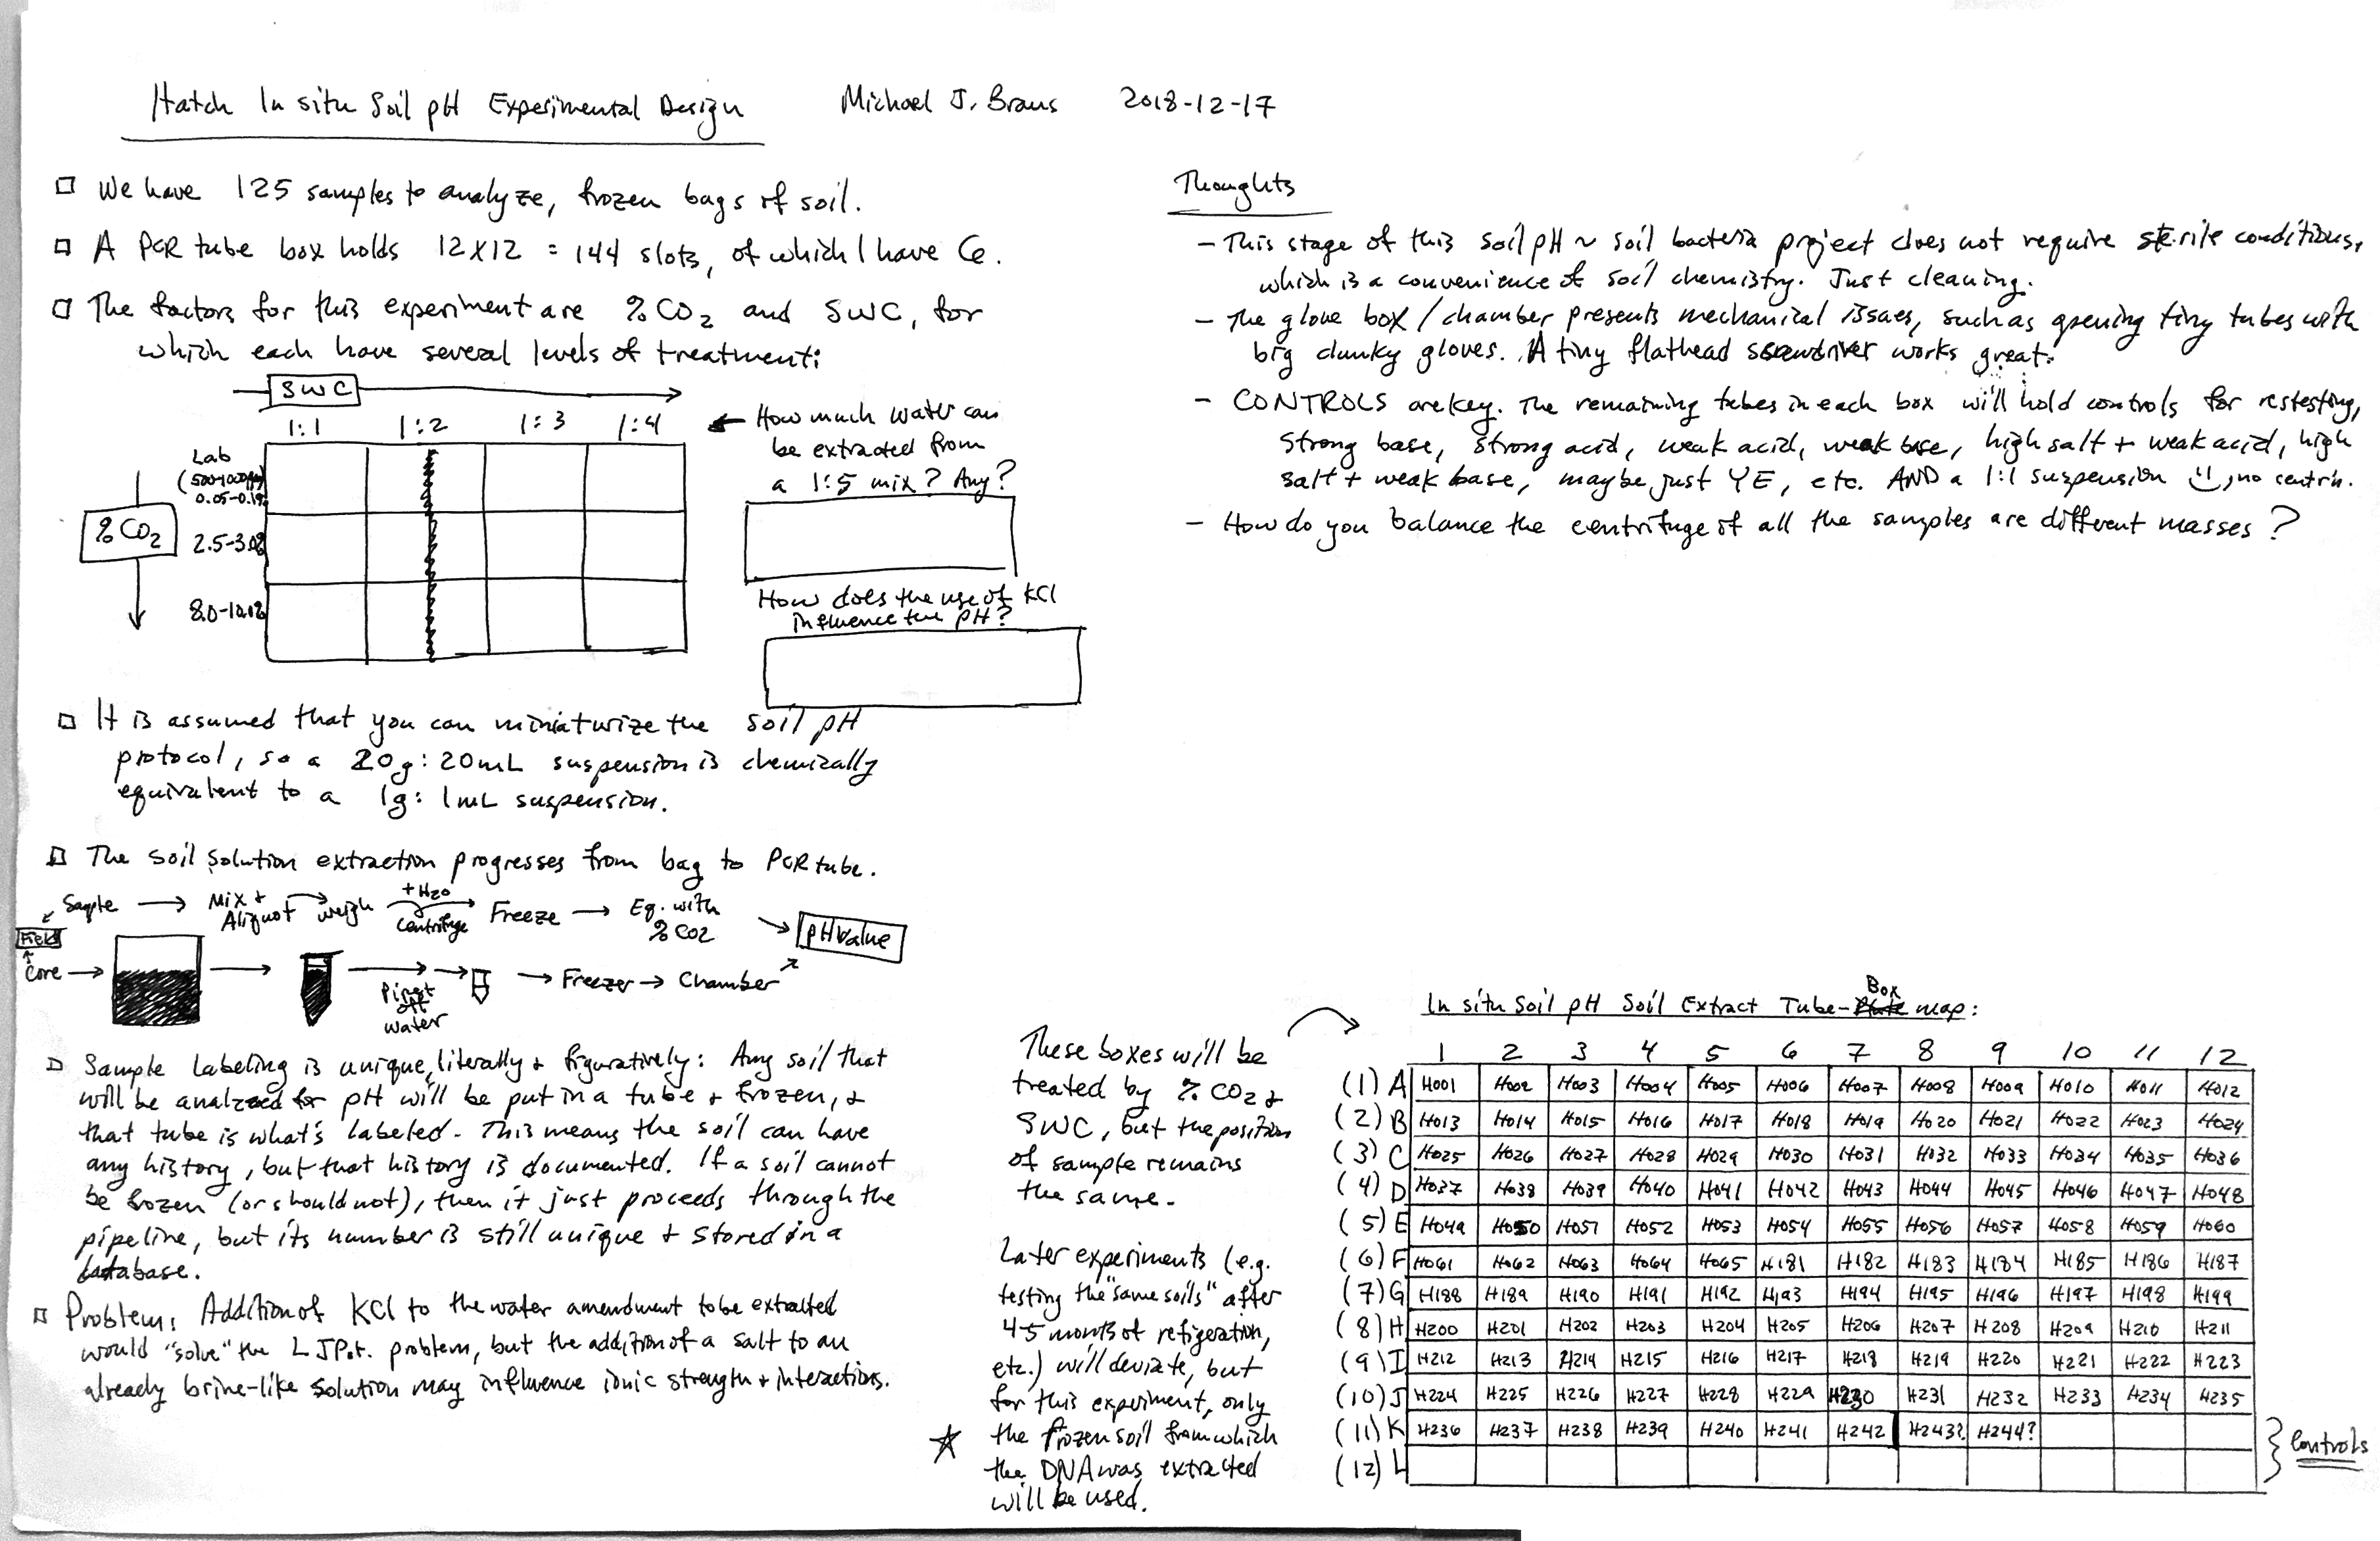 Hatch In situ Soil pH Experimental Design
Michael J. Braus
2018-12-17
We have 125 samples to analyze, frozen bags of soil.
A PCR tube box holds 12x12 = 144 slots, of which I have 6.
The factors for this experiment are %CO2 and SWC, for
which each have several levels of treatment:
SWC
1:1 1:2 1:3 1:4
Lab
0.05-0.1%
%CO2
2.5-3.0%
8.0-10.0%
← How much water can
be extracted from
a 1:5 mix? Any?
How does the use of KCl
influence the pH?
It is assumed that you can miniaturize the soil pH
protocol, so a 20g:20mL suspension is chemically
equivalent to a 1g:1mL suspension.
The soil solution extraction progresses from bag to PCR tube.
Sample → Mix + Aliquot → weigh → +H2O centrifuge → Freeze → Eq. with %CO2 → pH value
Field
Core → → → Pipet off water → → Freezer → Chamber
Sample labeling is unique, literally + figuratively: Any soil that
will be analyzed for pH will be put in a tube + frozen, +
that tube is what's labeled. This means the soil can have
any history, but that history is documented. If a soil cannot
be frozen (or should not), then it just proceeds through the
pipeline, but its number is still unique + stored in a
database.
Problem: Addition of KCl to the water amendment to be extracted
would "solve" the LJPot. problem, but the addition of a salt to an
already brine-like solution may influence ionic strength + interactions.
Thoughts
- This stage of this soil pH ~ soil bacteria project does not require sterile conditions,
which is a convenience of soil chemistry. Just cleaning.
- The glove box / chamber presents mechanical issues, such as opening tiny tubes with
big clunky gloves. A tiny flathead screwdriver works great.
- CONTROLS are key. The remaining tubes in each box will hold controls for restesting,
strong base, strong acid, weak acid, weak base, high salt + weak acid, high
salt + weak base, maybe just YE, etc. AND a 1:1 suspension :), no centri.
- How do you balance the centrifuge if all the samples are different masses?
These boxes will be
treated by %CO2 +
SWC, but the position
of sample remains
the same.
Later experiments (e.g.
testing the "same soils" after
4-5 months of refrigeration,
etc.) will deviate, but
for this experiment, only
the frozen soil from which
the DNA was extracted
will be used.
In situ Soil pH Soil Extract Tube-Box map:
1 2 3 4 5 6 7 8 9 10 11 12
(1) A H001 H002 H003 H004 H005 H006 H007 H008 H009 H010 H011 H012
(2) B H013 H014 H015 H016 H017 H018 H019 H020 H021 H022 H023 H024
(3) C H025 H026 H027 H028 H029 H030 H031 H032 H033 H034 H035 H036
(4) D H037 H038 H039 H040 H041 H042 H043 H044 H045 H046 H047 H048
(5) E H049 H050 H051 H052 H053 H054 H055 H056 H057 H058 H059 H060
(6) F H061 H062 H063 H064 H065 H181 H182 H183 H184 H185 H186 H187
(7) G H188 H189 H190 H191 H192 H193 H194 H195 H196 H197 H198 H199
(8) H H200 H201 H202 H203 H204 H205 H206 H207 H208 H209 H210 H211
(9) I H212 H213 H214 H215 H216 H217 H218 H219 H220 H221 H222 H223
(10) J H224 H225 H226 H227 H228 H229 H230 H231 H232 H233 H234 H235
(11) K H236 H237 H238 H239 H240 H241 H242 H243? H244?
(12) L
Controls